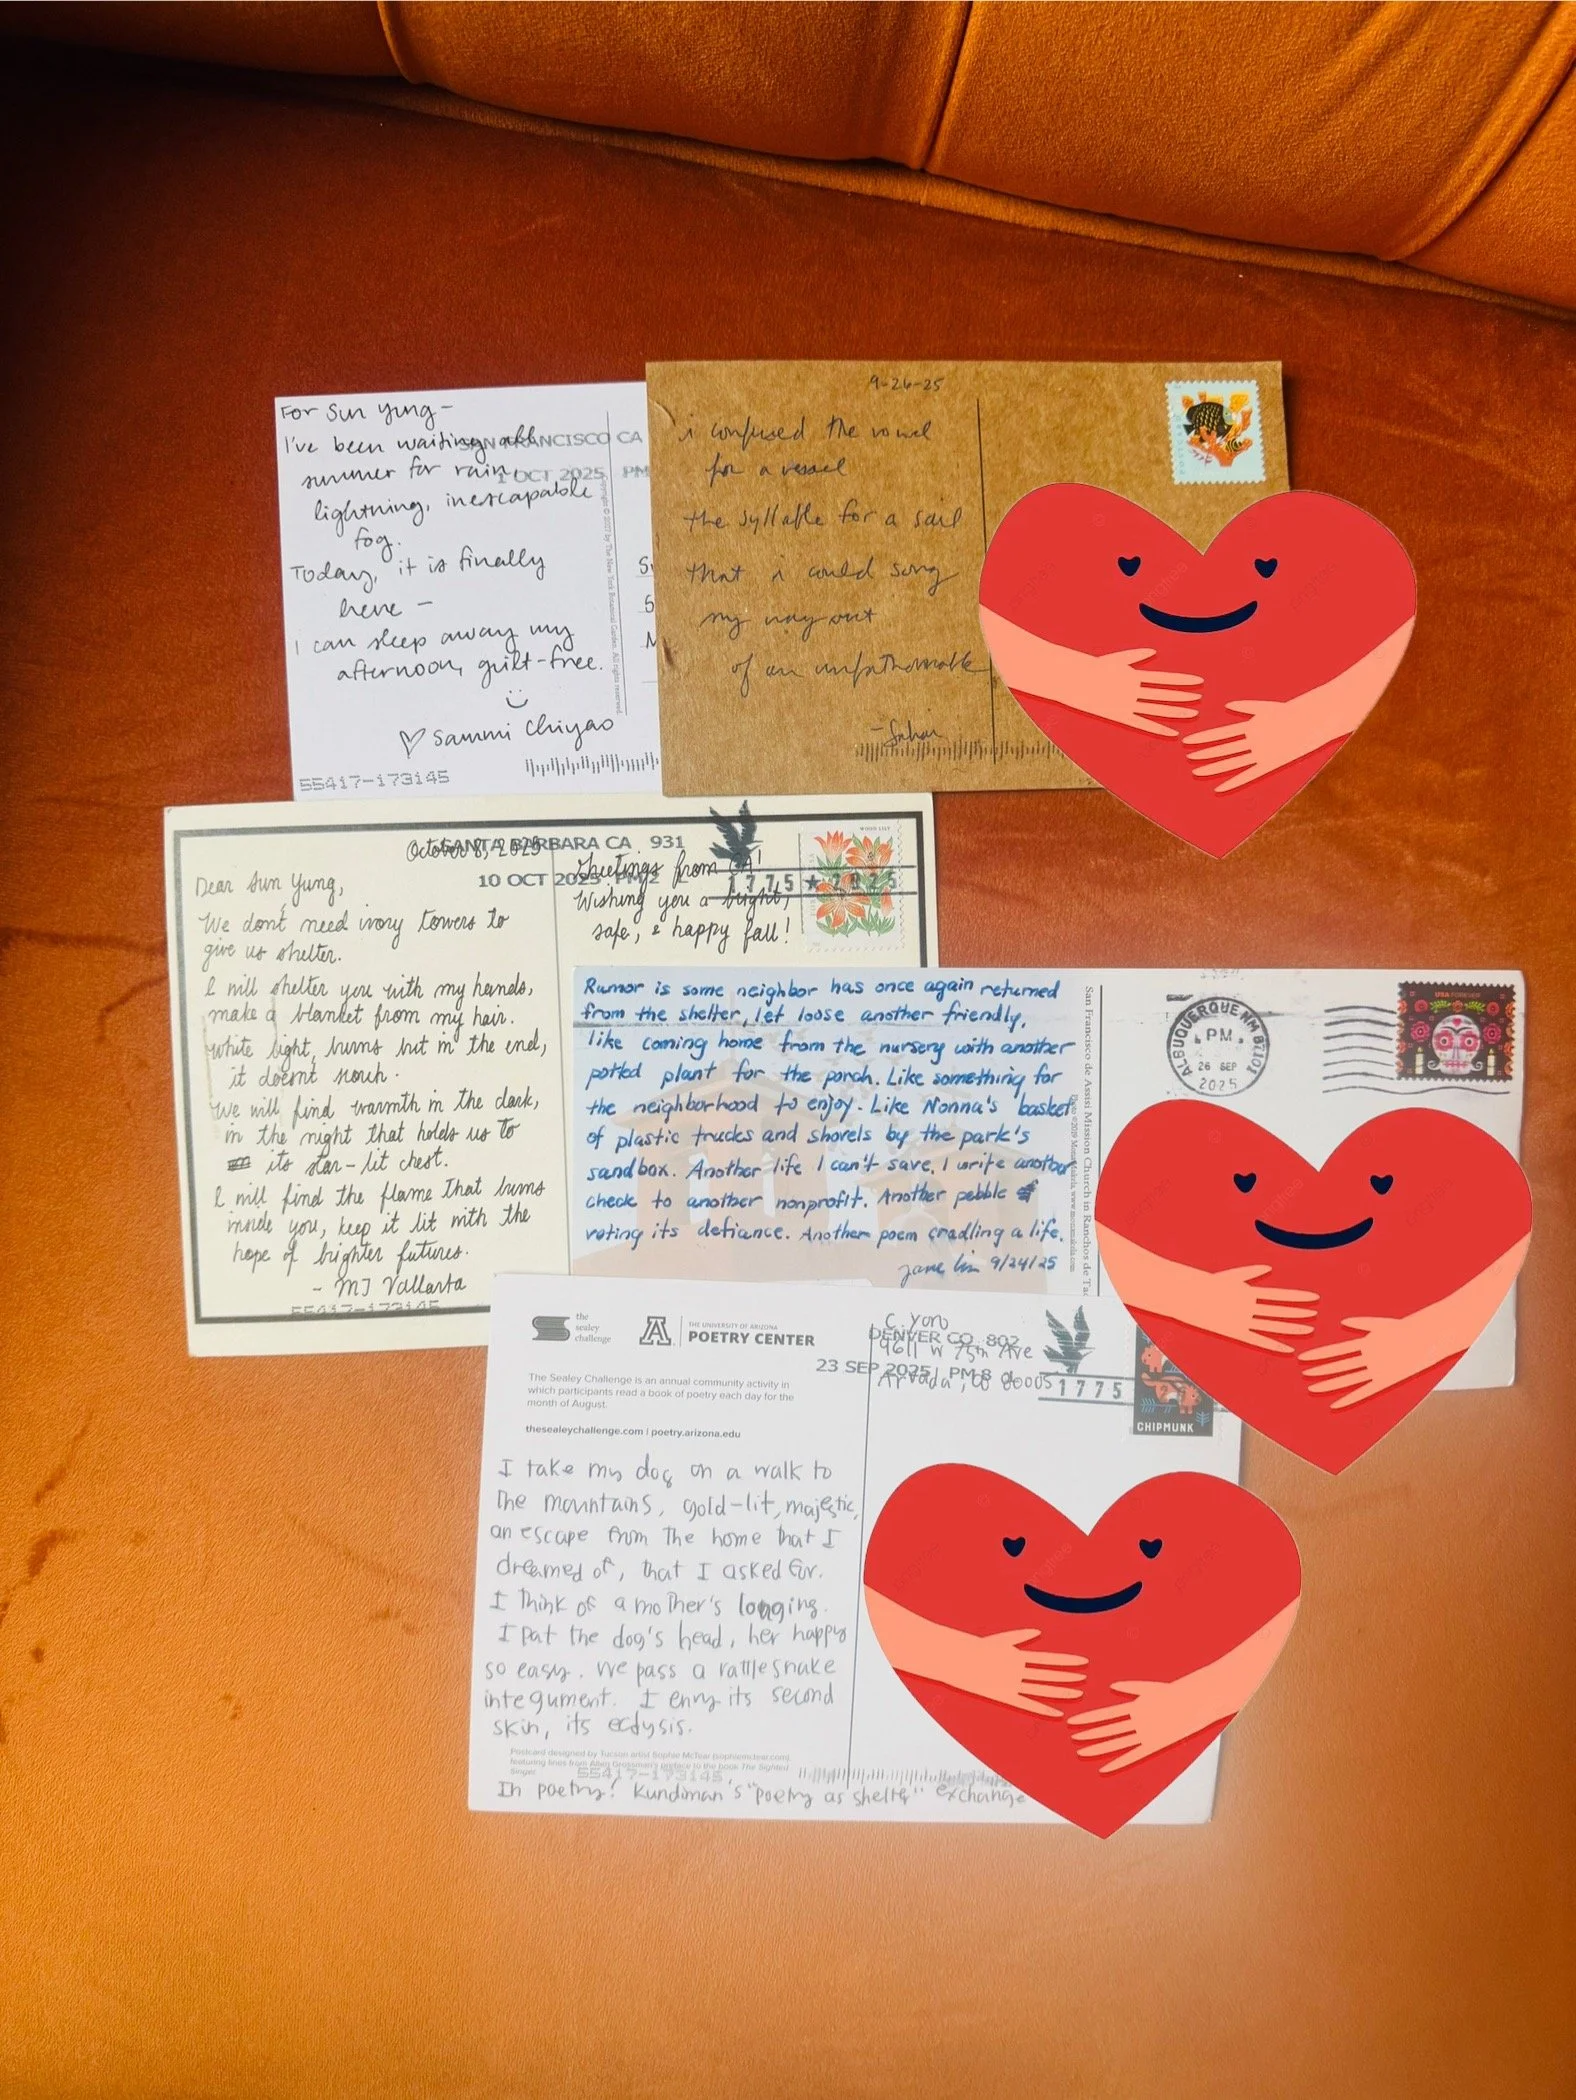 For Sun Yung—
I've been waiting all
summer for rain,
lightning, inescapable
fog.
Today, it is finally
here —
I can sleep away my
afternoon, guilt-free.
♡ Sammi Chiyao
SAN FRANCISCO CA
1 OCT 2025 PM
Copyright © 2017 by The New York Botanical Garden. All rights reserved.
55417-173145
9-26-25
i confused the vowel
for a vessel
the syllable for a sail
that i could song
my way out
of an unfathomable
- Sahar
October 8, 2025
SANTA BARBARA CA 931
10 OCT 2025 PM 2
1775 ★ 2025
WOOD LILY
Dear Sun Yung,
We don't need ivory towers to
give us shelter.
I will shelter you with my hands,
make a blanket from my hair.
White light burns but in the end,
it doesn't
We will find warmth in the dark,
in the night that holds us to
its star-lit chest.
I will find the flame that burns
inside you, keep it lit with the
hope of brighter futures.
- MJ Vallarta
55417-173145
Greetings from CA!
Wishing you a bright,
safe, & happy fall!
Rumor is some neighbor has once again returned
from the shelter, let loose another friendly,
like coming home from the nursery with another
potted plant for the porch. Like something for
the neighborhood to enjoy. Like Nonna's basket
of plastic trucks and shovels by the park's
sandbox. Another life I can't save, I write another
check to another nonprofit. Another pebble
voting its defiance. Another poem cradling a life.
jane lin 9/24/25
San Francisco de Asissi Mission Church in Ranchos de
ALBUQUERQUE NM 87101
PM
26 SEP
2025
USA FOREVER
the
sealey
challenge
THE UNIVERSITY OF ARIZONA
POETRY CENTER
The Sealey Challenge is an annual community activity in
which participants read a book of poetry each day for the
month of August.
thesealeychallenge.com | poetry.arizona.edu
C. Yoro
9611 W 75th Ave
Arvada, CO 80005
DENVER CO 802
23 SEP 2025 PM 8
1775
CHIPMUNK
I take my dog on a walk to
the mountains, gold-lit, majestic,
an escape from the home that I
dreamed of, that I asked for.
I think of a mother's longing.
I pat the dog's head, her happy
so easy. We pass a rattlesnake
integument. I envy its second
skin, its ecdysis.
Postcard designed by Tucson artist Sophie McTear (sophiemctear.com),
featuring lines from Allen Grossman's preface to the book The Sighted
Singer.
55417-173145
In poetry! Kundiman's "poetry as shelter" exchange